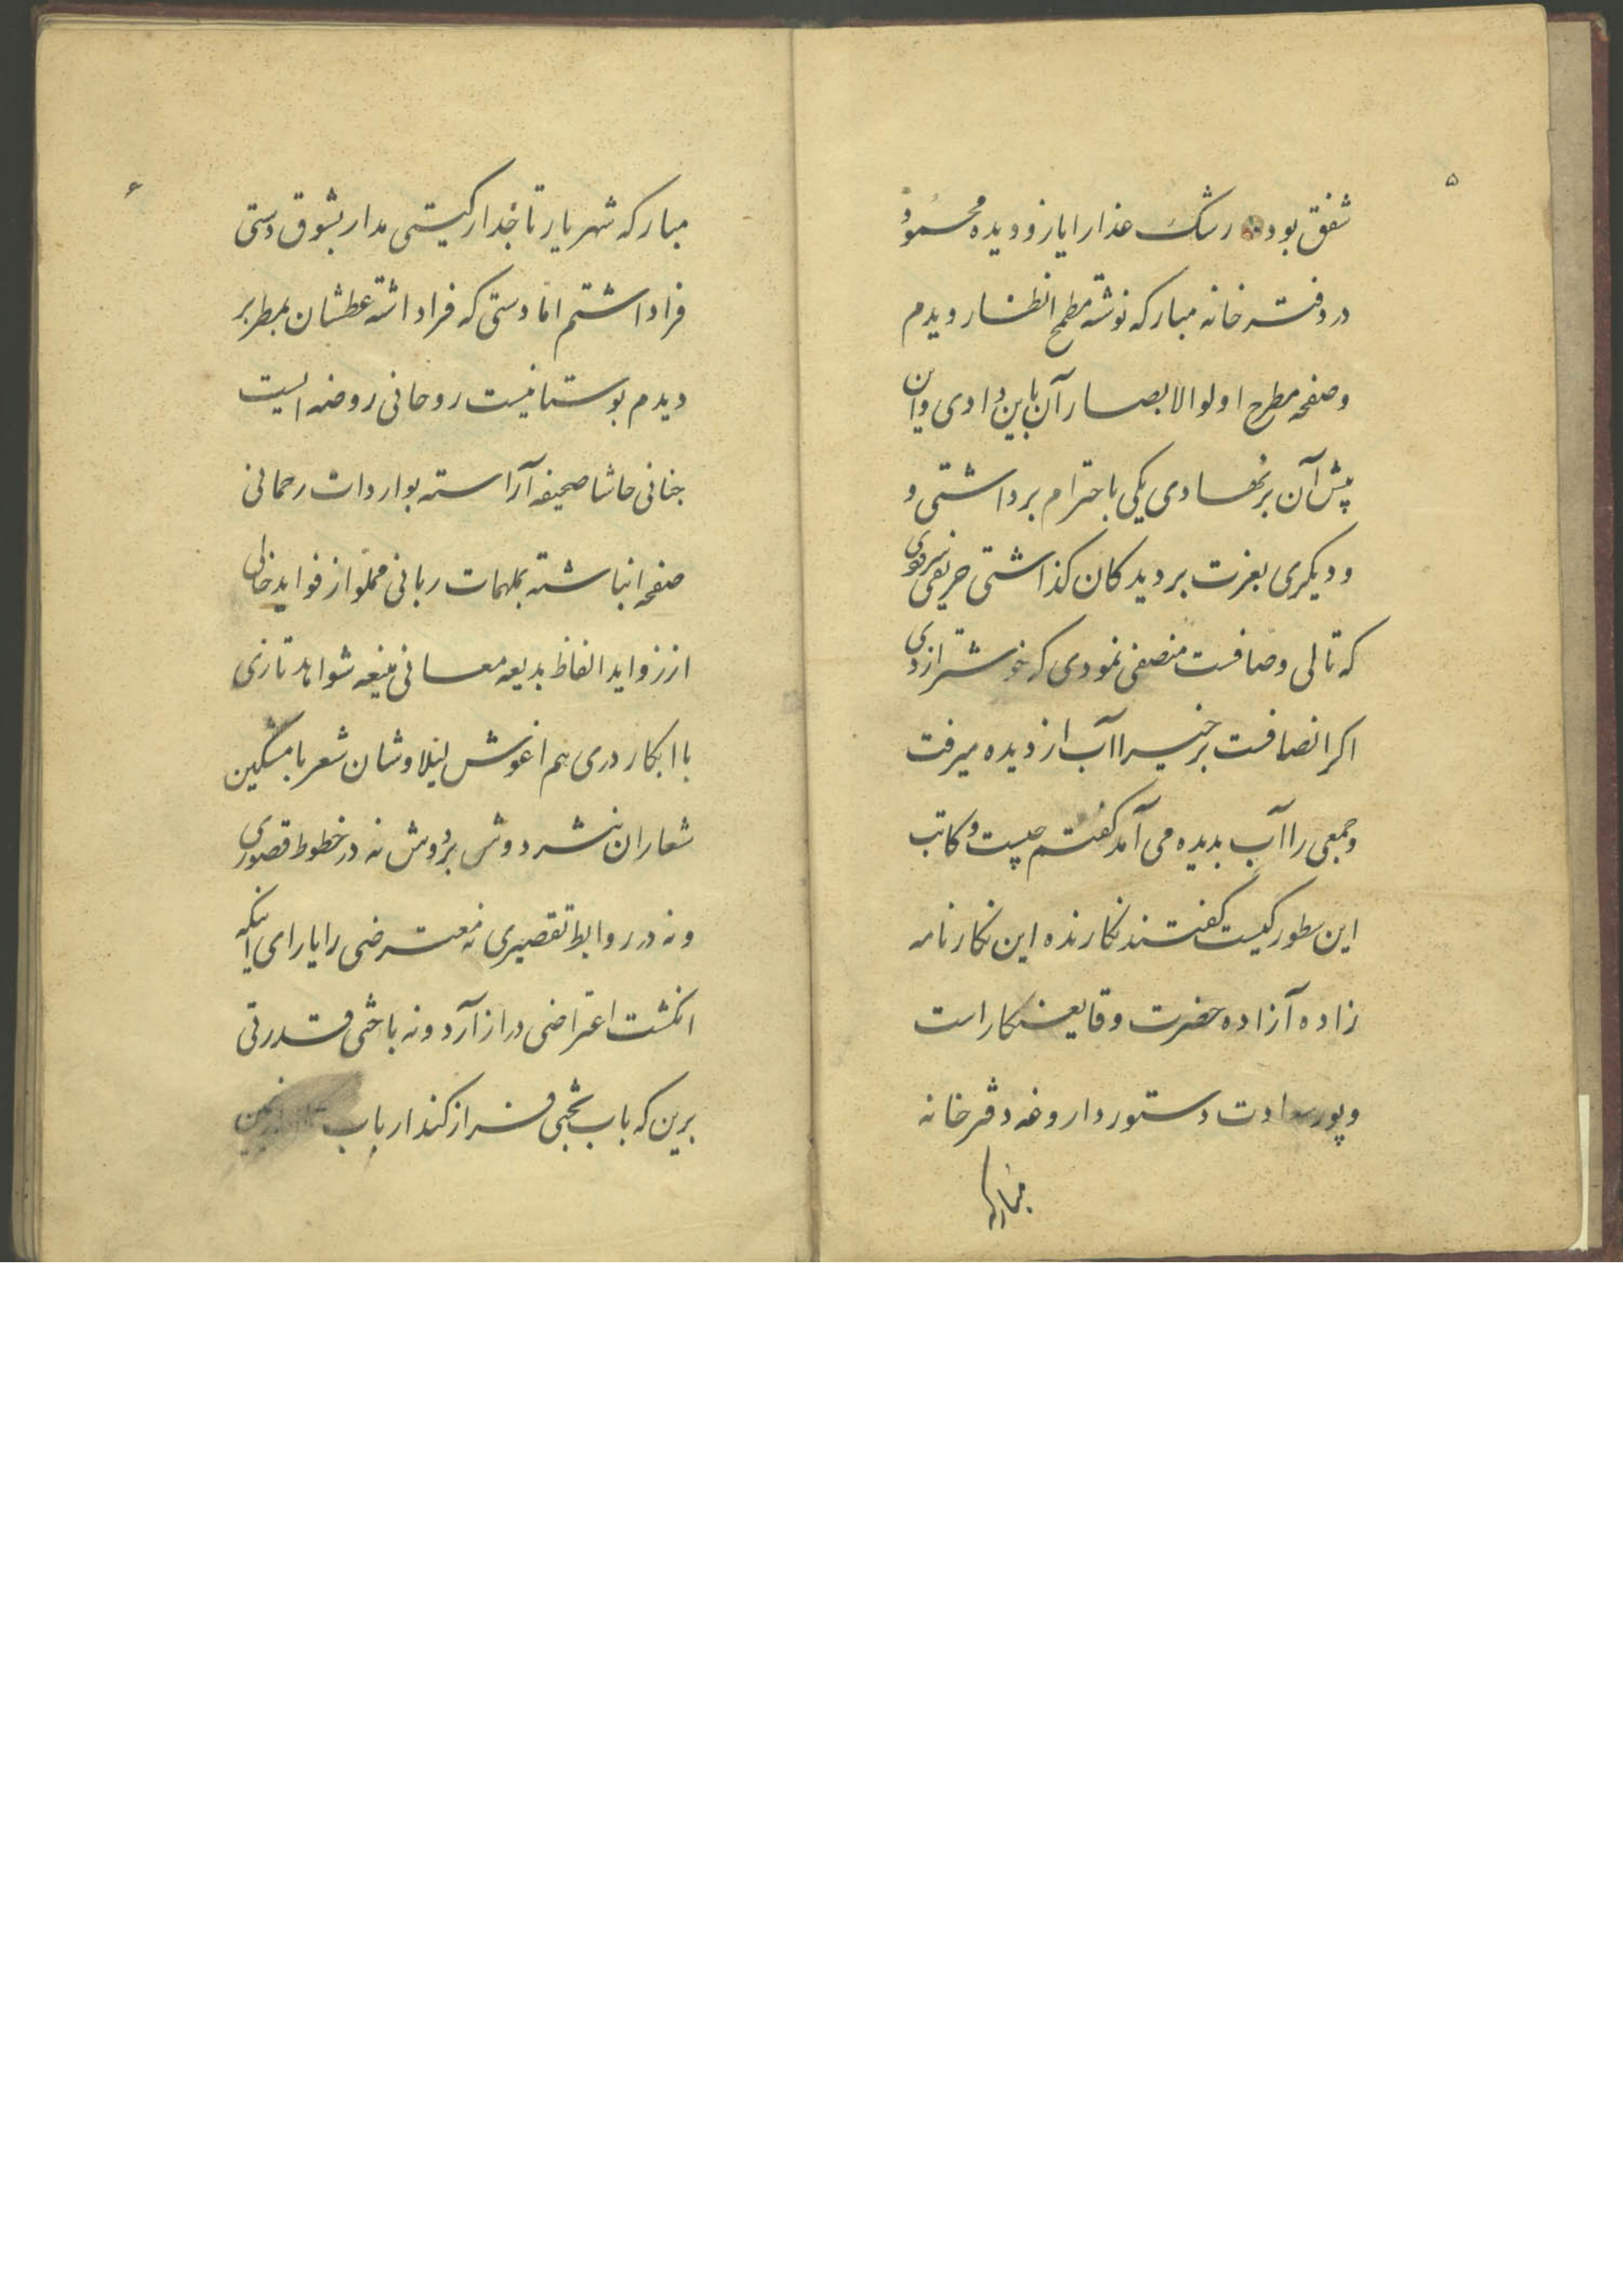 ۵
شفق بود رشک عذار ایاز و دیده محمود
در دفتر خانه مبارکه نوشته مطمح انظار دیدم
و صفحه مطرح اولوالابصار آن باین دادی و این
پیش آن بر نهادی یکی باحترام برداشتی و
و دیکری بعزت بر دیدکان کذاشتی حریفی
که تالی وصافست منصفی نمودی که خوشتر ازدی
اکر انصافست برخی را آب از دیده میرفت
و جمعی را آب بدیده می آمد کفتم چیست و کاتب
این سطور کیست کفتند نکارنده این نکارنامه
زاده آزاده حضرت وقایع نکار است
و پور سعادت دستور داروغه دفتر خانه
مبارکه
۶
مبارکه شهریار تاجدار کیتی مدار بشوق دستی
فرا داشتم اما دستی که فرا داشته عطشان بمطر بر
دیدم بوستانیست روحانی روضه ایست
جنانی حاشا صحیفه آراسته بواردات رحمانی
صفحه انباشته بملهمات ربانی مملو از فواید خالی
از زواید الفاظ بدیعه معانی منیعه شواهد تازی
با ابکار دری هم اغوش لیلاوشان شعر با مشکین
شعاران نثر دوش بردوش نه در خطوط قصوری
و نه در روابط تقصیری نه معترضی را یارای اینکه
انکشت اعتراضی دراز آرد و نه باحثی قدرتی
برین که باب بحثی فراز کند ارباب